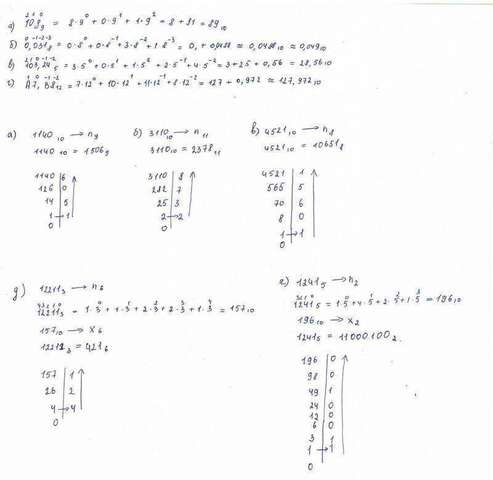 а) 108₉ = 8·9⁰ + 0·9¹ + 1·9² = 8 + 81 = 89₁₀
б) 0,031₈ = 0·8⁰ + 0·8⁻¹ + 3·8⁻² + 1·8⁻³ = 0, + 0,0488 ≈ 0,0488₁₀ ≈ 0,049₁₀
в) 103,24₅ = 3·5⁰ + 0·5¹ + 1·5² + 2·5⁻¹ + 4·5⁻² = 3 + 25 + 0,56 = 28,56₁₀
г) A7,B8₁₂ = 7·12⁰ + 10·12¹ + 11·12⁻¹ + 8·12⁻² = 127 + 0,972 ≈ 127,972₁₀
а) 1140₁₀ → n₉
1140₁₀ = 1506₉
1140 6
126 0
14 5
1 → 1
0
б) 3110₁₀ → n₁₁
3110₁₀ = 2378₁₁
3110 8
282 7
25 3
2 → 2
0
в) 4521₁₀ → n₈
4521₁₀ = 10651₈
4521 1
565 5
70 6
8 0
1 → 1
0
д) 12211₃ → n₆
12211₃ = 1·3⁰ + 1·3¹ + 2·3² + 2·3³ + 1·3⁴ = 157₁₀
157₁₀ → x₆
12212₃ = 421₆
157 1
26 2
4 → 4
0
1241₅ → n₂
1241₅ = 1·5⁰ + 4·5¹ + 2·5² + 1·5³ = 196₁₀
196₁₀ → x₂
1241₅ = 11000100₂.
196 0
98 0
49 1
24 0
12 0
6 0
3 1
1 → 1
0